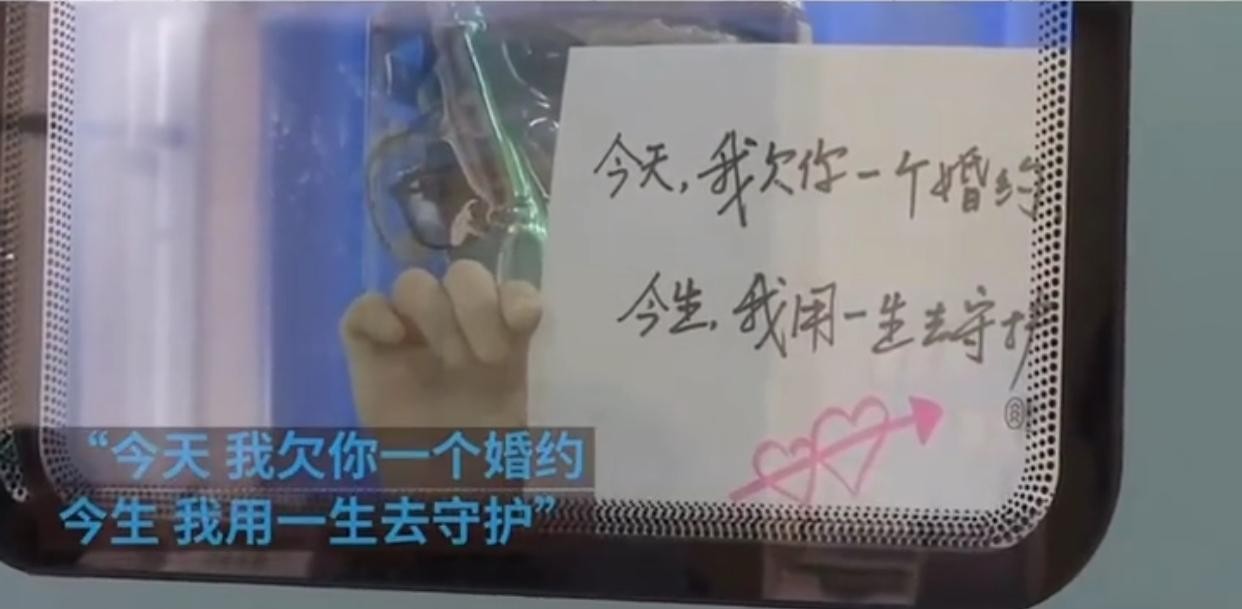 今天,我欠你一个婚约
今生,我用一生去守护
“今天 我欠你一个婚约
今生 我用一生去守护”